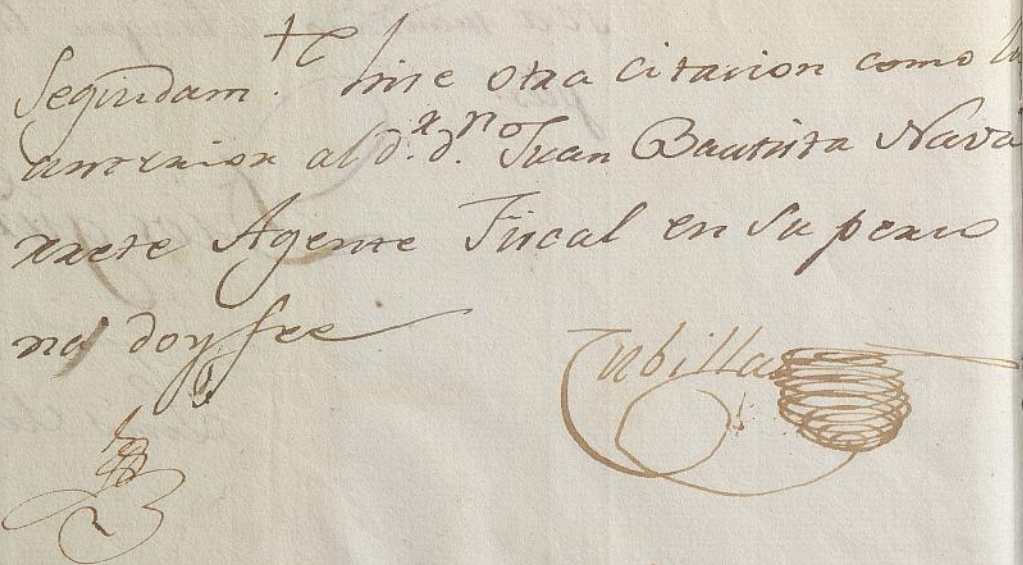 Seguidam.te hise otra citacion como la
anterior al d.r d.n Juan Bautista Nava
rrete Agente Fiscal en su perso
na doy fee
Tubilla